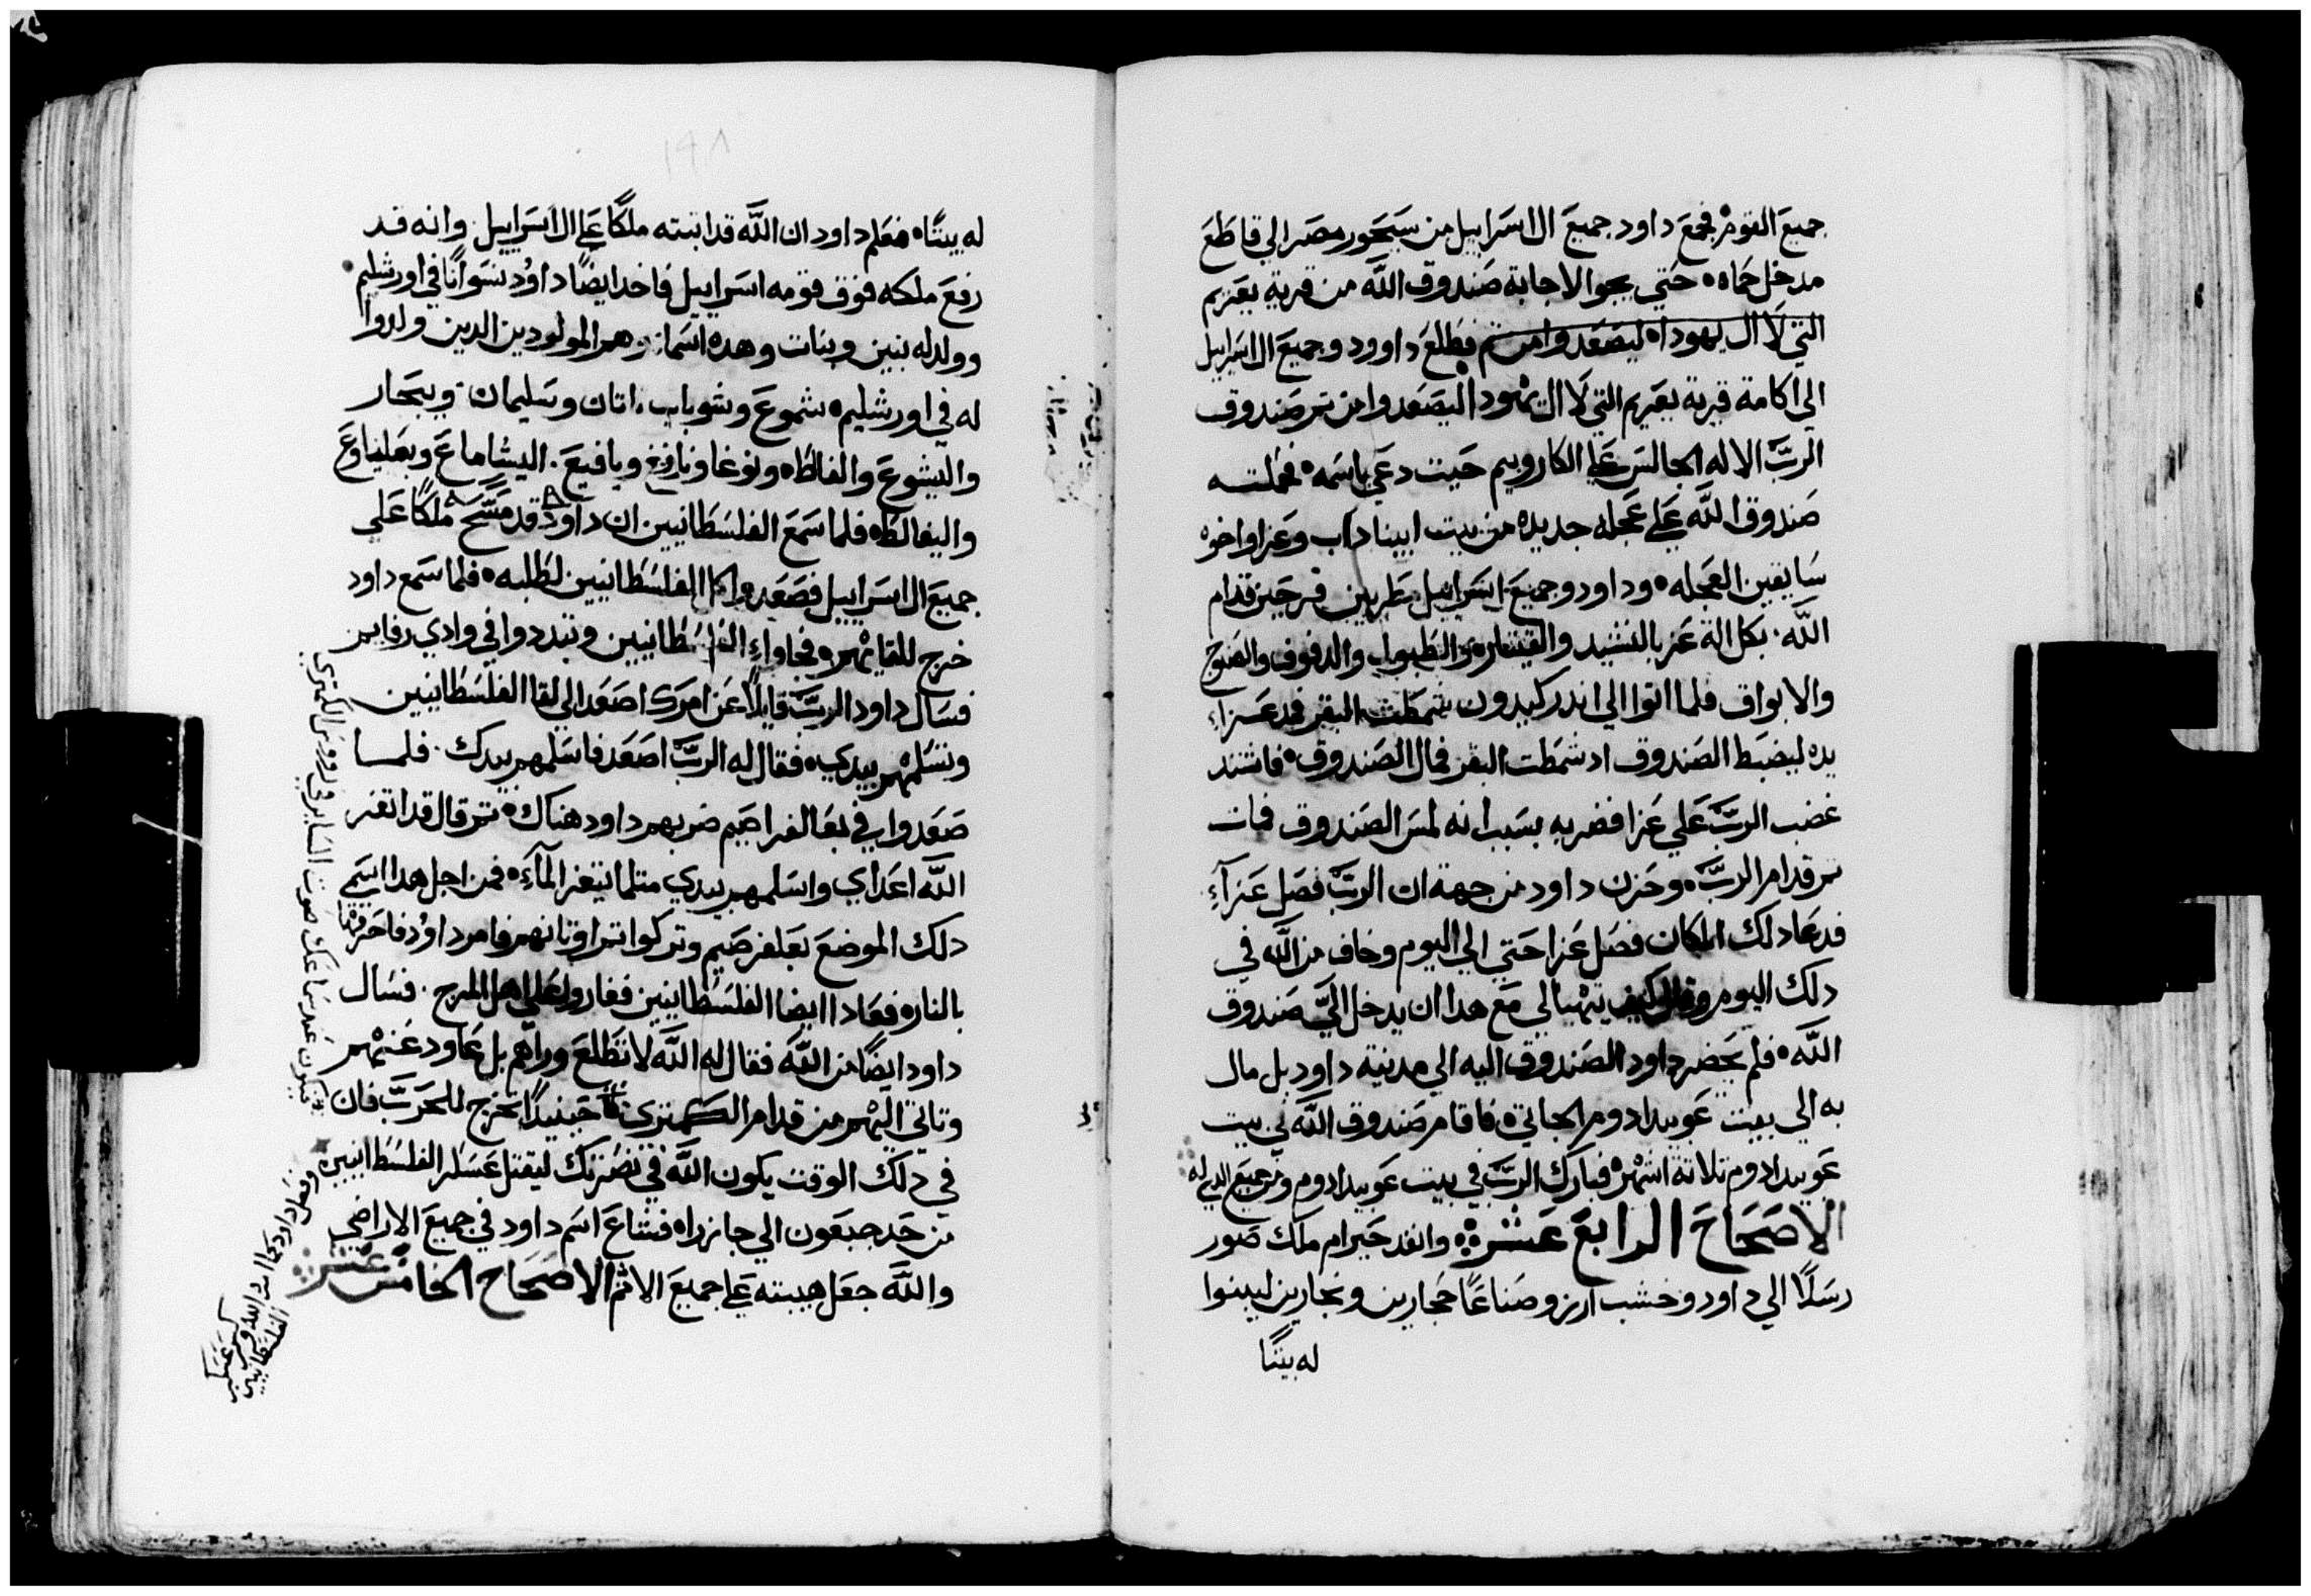 جميع القوم فجمع داود جميع ال اسراييل من سيحور مصر الي قاطع
مدخل حماه حتي يجوا لاجابة صندوق الله من قرية يعريم
التي لآل يهوداه ليصعدوا من تم فطلع داوود وجميع ال اسراييل
الي اكامة قرية يعريم التي لآل يهودا ليصعدوا من تم صندوق
الرب الاله الجالس علي الكاروبيم حيت دعي باسمه فحملت
صندوق الله علي عجله جديده من بيت ابيناداب وعزا واخوه
سايقين العجله وداود وجميع اسراييل طربين فرحين قدام
الله بكل الة عز بالنشيد والقيتاره والطبول والدفوف والصنوج
والابواق فلما اتوا الي اندر كيدون شمطت البقر فمد عزاء
يده ليضبط الصندوق اد شمطت البقر فمال الصندوق فاشتد
غضب الرب علي عزا فضربه بسبب انه لمس الصندوق فمات
تم قدام الرب وحزن داود من جهة ان الرب فصل عزآء
فدعا دلك المكان فصل عزا حتي الي اليوم وخاف من الله في
دلك اليوم وقال كيف يتهيالي مع هدا ان يدخل الي صندوق
الله فلم يحضر داود الصندوق اليه الي مدينة داود بل مال
به الي بيت عوبيدادوم الجاتي فاقام صندوق الله في بيت
عوبيدادوم تلاتة اشهر فبارك الرب في بيت عوبيدادوم وجميع الدي له
الاصحاح الرابع عشر وانفد حيرام ملك صور
رسلًا الي داود وخشب ارز وصناعًا حجارين ونجارين ليبنوا
له بيتًا
١٩٨
له بيتًا فعلم داود ان الله قد اتبته ملكًا علي ال اسراييل وانه قد
رفع ملكه فوق قومه اسراييل فاخد ايضًا داود نسوانًا في اورشليم
وولد له بنين وبنات وهده اسما هم المولودين الدين ولدوا
له في اورشليم شموع وشوباب ناتان وسليمان ويبحار
واليشوع والفالطا ونوغا ونافغ ويافيع اليشاماع وبعلياوع
واليفالطا فلما سمع الفلسطانيين ان داود قد مسح ملكًا علي
جميع ال اسراييل فصعدوا كل الفلسطانيين لطلبه فلما سمع داود
خرج للقايهم فجاوا الفلسطانيين وتبددوا في وادي رفايم
فسال داود الرب قايلًا عن امرك اصعد الي لقا الفلسطانيين
وتسلمهم بيدي فقال له الرب اصعد فاسلمهم بيدك فلما
صعدوا في بعالفراصيم ضربهم داود هناك تم قال قد اتغز
الله اعداي واسلمهم بيدي متلما يتغز المآء فمن اجل هدا اسم
دلك الموضع بعلفرصيم وتركوا تم اوتانهم فامر داود فاحرقها
بالنار فعادا ايضا الفلسطانيين فغاروا علي اهل المرج فسال
داود ايضًا من الله فقال له الله لا تطلع وراهم بل عاود عنهم
وتاتي اليهم من قدام الكمتري حينيدًا تخرج للحرب فان
في دلك الوقت يكون الله في نصرتك ليقتل عسكر الفلسطانيين
من حد جبعون الي جازراه فشاع اسم داود في جميع الاراضي
والله جعل هيبته علي جميع الامم الاصحاح الخامس عشر
فيكون عند سماعك صوت الساير في روس الكمتري
وفعل داود كما امره الله وكسر عسكر
الفلسطانيين